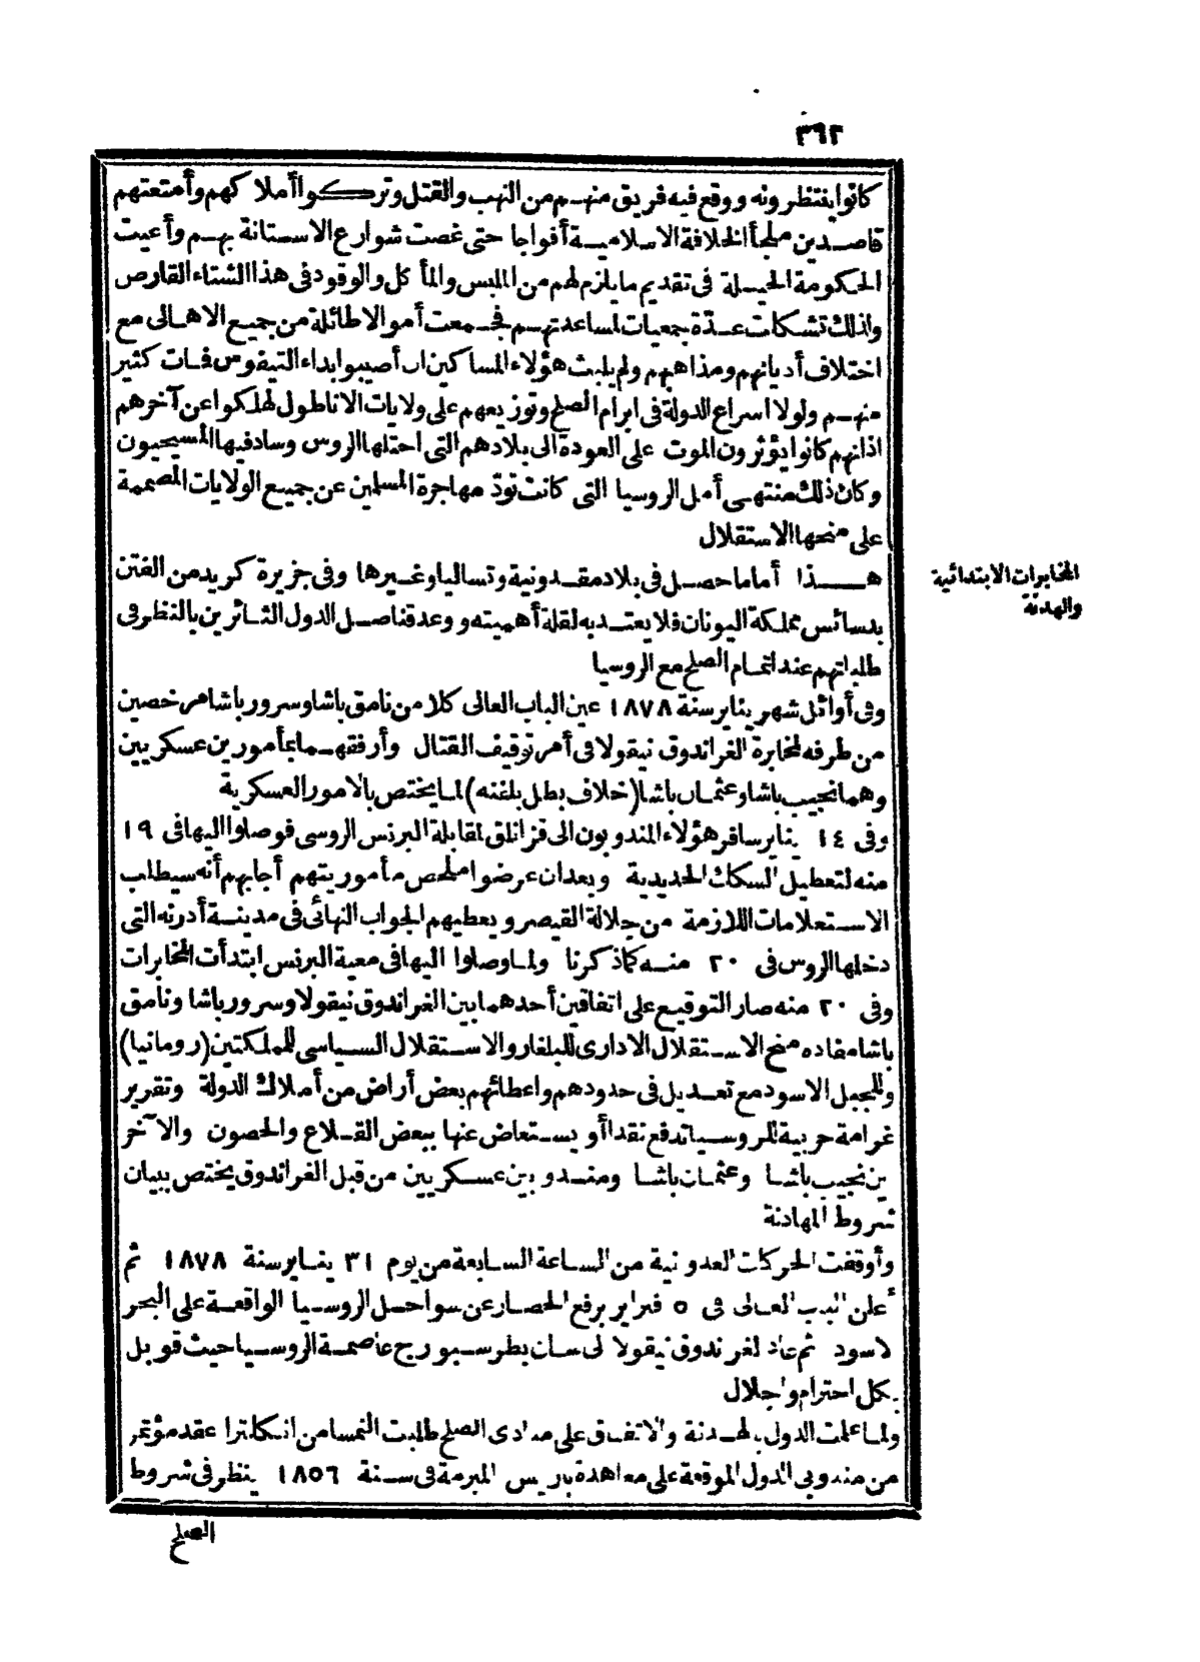 ٣٩٢
كانوا ينتظرونه ووقع فيه فريق منهم من النهب والقتل وتركوا أملاكهم وأمتعتهم
قاصدين ملجأ الخلافة الاسلامية أفواجا حتى غصت شوارع الاستانة بهم وأعيت
الحكومة الحيلة فى تقديم ما يلزم لهم من الملبس والمأكل والوقود فى هذا الشتاء القارص
ولذلك تشكلت عدّة جمعيات لمساعدتهم فجمعت أموالا طائلة من جميع الاهالى مع
اختلاف أديانهم ومذاهبهم ولم يلبث هؤلاء المساكين ان أصيبوا بداء التيفوس فات كثير
منهم ولولا اسراع الدولة فى ابرام الصلح وتوزيعهم على ولايات الاناطول لهلكوا عن آخرهم
اذ انهم كانوا يؤثرون الموت على العودة الى بلادهم التى احتلها الروس وساد فيها المسيحيون
وكان ذلك منتهى أمل الروسيا التى كانت تودّ مهاجرة المسلمين عن جميع الولايات المصممة
على منحها الاستقلال
المخابرات الابتدائية
والهدنة
هذا أما ما حصل فى بلاد مقدونية وتساليا وغيرها وفى جزيرة كريد من الفتن
بدسائس مملكة اليونان فلا يعتد به لقلة أهميته ووعد قناصل الدول الثائرين بالنظر فى
طلباتهم عند اتمام الصلح مع الروسيا
وفى أوائل شهر يناير سنة ١٨٧٨ عين الباب العالى كلا من نامق باشا وسرور باشا مرخصين
من طرفه لمخابرة الغراندوق نيقولا فى أمر توقيف القتال وأرفقهما بمأمورين عسكريين
وهما نجيب باشا وعثمان باشا (خلاف بطل بلفنه) لما يختص بالامور العسكرية
وفى ١٤ يناير سافر هؤلاء المندوبون الى قزانلق لمقابلة البرنس الروسى فوصلوا اليها فى ١٩
منه لتعطيل السكك الحديدية وبعد ان عرضوا ملخص مأموريتهم أجابهم أنه سيطلب
الاستعلامات اللازمة من جلالة القيصر ويعطيهم الجواب النهائى فى مدينة أدرنه التى
دخلها الروس فى ٢٠ منه كما ذكرنا ولما وصلوا اليها فى معية البرنس ابتدأت المخابرات
وفى ٢٠ منه صار التوقيع على اتفاقين أحدهما بين الغراندوق نيقولا وسرور باشا ونامق
باشا مفاده منح الاستقلال الادارى للبلغار والاستقلال السياسى للمملكتين (رومانيا)
وللجبل الاسود مع تعديل فى حدودهم واعطائهم بعض أراض من أملاك الدولة وتقرير
غرامة حربية للروسيا تدفع نقدا أو يستعاض عنها ببعض القلاع والحصون والآخر
بين نجيب باشا وعثمان باشا ومندوبين عسكريين من قبل الغراندوق يختص ببيان
شروط المهادنة
وأوقفت الحركات العدوانية من الساعة السابعة من يوم ٣١ يناير سنة ١٨٧٨ ثم
أعلن الباب العالى فى ٥ فبراير برفع الحصار عن سواحل الروسيا الواقعة على البحر
الاسود ثم عاد الغراندوق نيقولا الى سان بطرسبورج عاصمة الروسيا حيث قوبل
بكل احترام واجلال
ولما علمت الدول بالهدنة والاتفاق على مبادى الصلح طلبت النمسا من انكلترا عقد مؤتمر
من مندوبى الدول الموقعة على معاهدة باريس المبرمة فى سنة ١٨٥٦ ينظر فى شروط
الصلح